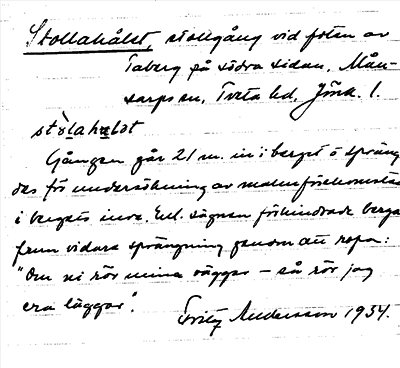 Stollahålet, stollgång vid foten av
Taberg på södra sidan, Mån-
sarps sn, Tveta hd, Jönk. l.
stòlahʉlət
Gången går 21 m. in i berget o spräng
des för undersökning av malmförekomsten
i bergets inre. Enl. sägnen förhindrade berga
frun vidare sprängning genom att ropa:
"Om ni rör mina väggar – så rör jag
era läggar".
Fritz Andersson 1934.